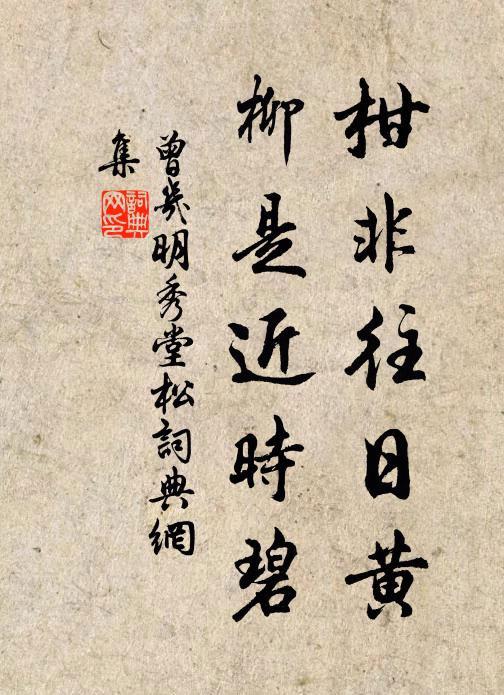 柑非往日黄
柳是近時碧
曾幾明秀堂松詞典網
集
詞典
网印